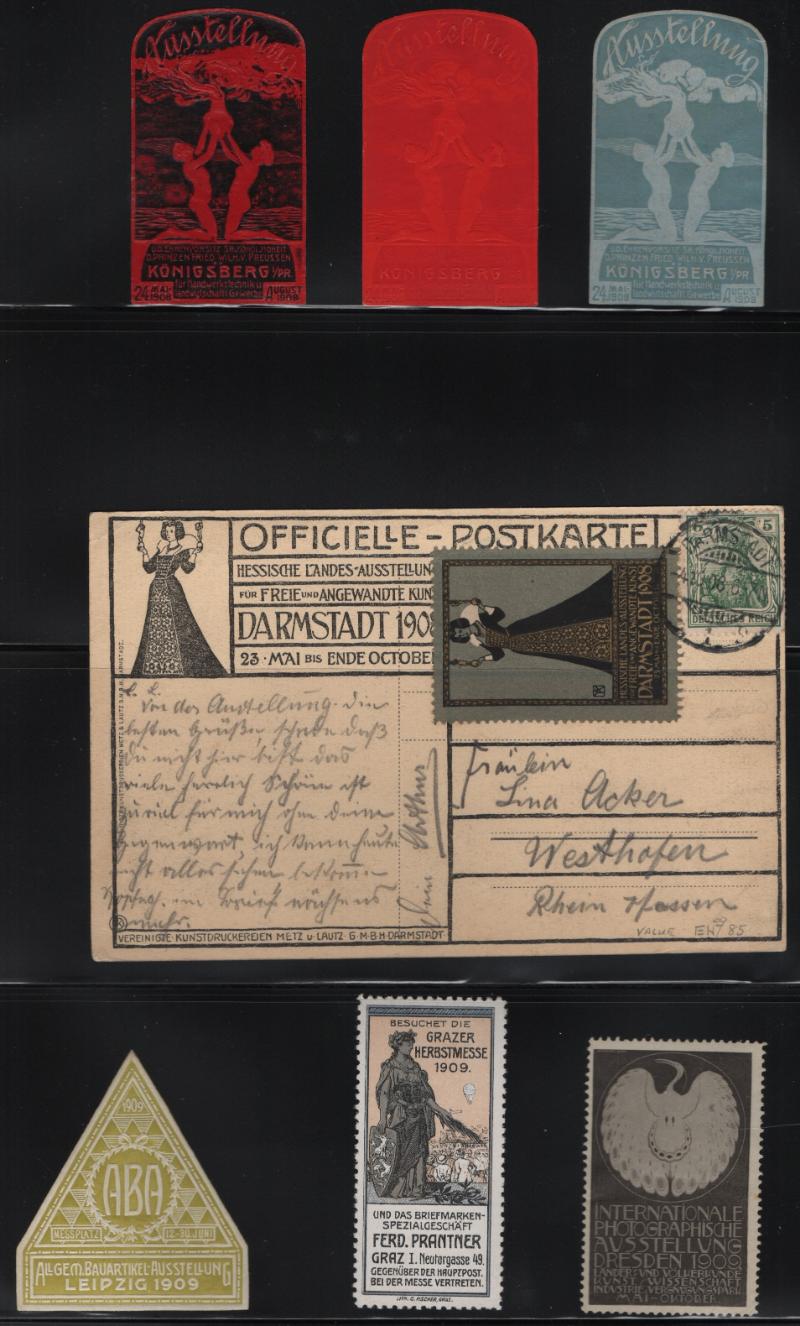 Ausstellung
U.D. EHRENVORSITZ SR. KÖN. HOHEIT
D. PRINZEN FRIED. WILH. V. PREUSSEN
KÖNIGSBERG I/PR.
für Handwerkstechnik u.
landwirtschaftl. Gewerbe
24. MAI- 1908 AUGUST 1908
Ausstellung
KÖNIGSBERG I/PR.
Ausstellung
U.D. EHRENVORSITZ SR. KÖN. HOHEIT
D. PRINZEN FRIED. WILH. V. PREUSSEN
KÖNIGSBERG I/PR.
für Handwerkstechnik u.
landwirtschaftl. Gewerbe
24. MAI- 1908 AUGUST 1908
OFFICIELLE-POSTKARTE
HESSISCHE LANDES-AUSSTELLUN
FÜR FREIE UND ANGEWANDTE KUN
DARMSTADT 1908
23·MAI BIS ENDE OCTOBER
HESSISCHE LANDES-AUSSTELLUNG
FÜR FREIE UND ANGEWANDTE KUNST
DARMSTADT 1908
5
DARMSTADT
DEUTSCHES REICH
Von der Ausstellung die
besten Grüße, schade daß
du nicht hier bist das
viele herrlich Schöne ist
zuviel für mich ohne deine
Gegenwart, ich kann heute
nicht alles sehen
im Brief nächstens
mehr.
Dein Arthur
Fräulein
Lina Acker
Westhofen
Rhein Hessen
VALUE 85
VEREINIGTE·KUNSTDRUCKEREIEN METZ U LAUTZ G·M·B·H·DARMSTADT
1909
ABA
MESSPLATZ 12.-30. JUNI
ALLGEM. BAUARTIKEL-AUSSTELLUNG
LEIPZIG 1909
BESUCHET DIE
GRAZER
HERBSTMESSE
1909.
UND DAS BRIEFMARKEN-
SPEZIALGESCHÄFT
FERD. PRANTNER
GRAZ I. Neutorgasse 49.
GEGENÜBER DER HAUPTPOST.
BEI DER MESSE VERTRETEN.
LITH. C. FISCHER, GRAZ.
INTERNATIONALE
PHOTOGRAPHISCHE
AUSSTELLUNG
DRESDEN 1909
LÄNDER UND VÖLKERKUNDE
KUNST/WISSENSCHAFT
INDUSTRIE, VERGNÜGUNGSPARK
MAI-OKTOBER